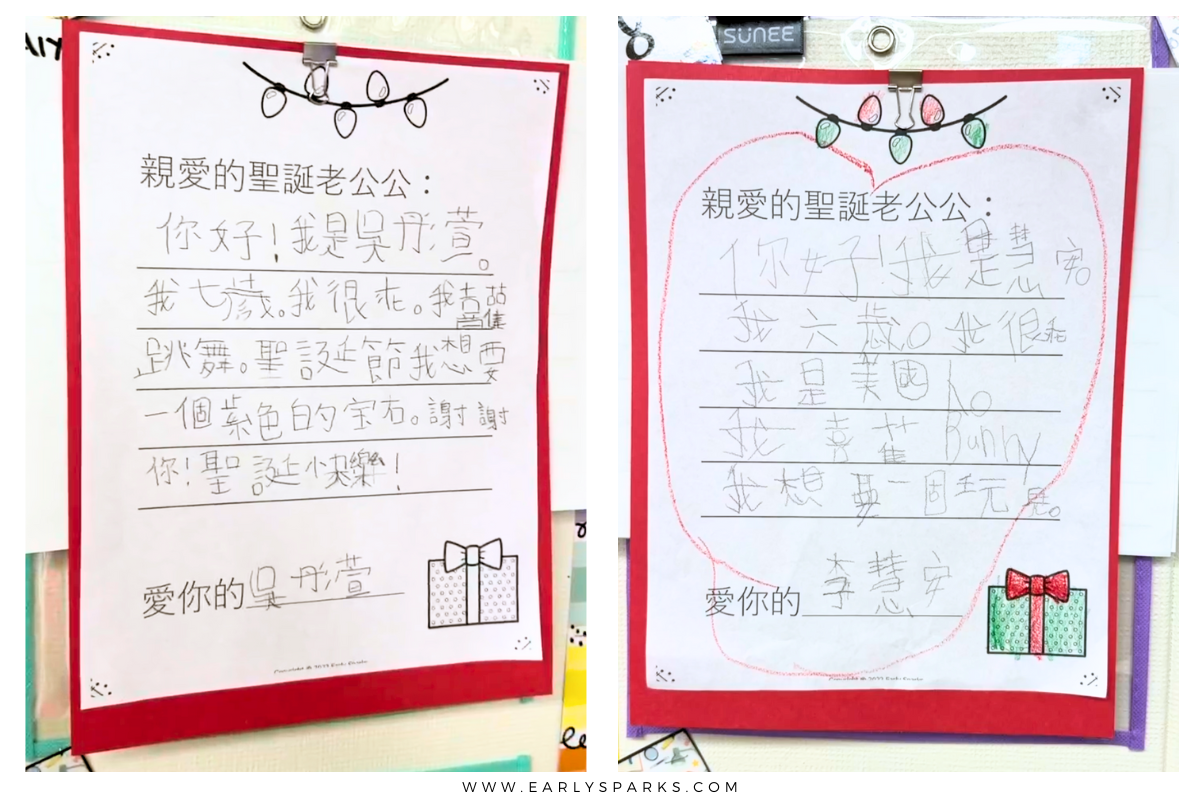 親愛的聖誕老公公：
你好!我是吳彤萱。
我七歲。我很乖。我喜
跳舞。聖誕節我想要
一個紫色的宝石。謝謝
你!聖誕快樂!
愛你的吳彤萱
SUNEE
親愛的聖誕老公公：
你好!我是慧安
我六歲。我很乖
我是美國人。
我喜隹 Bunny
我想要一個玩具。
愛你的李慧安
WWW.EARLYSPARKS.COM